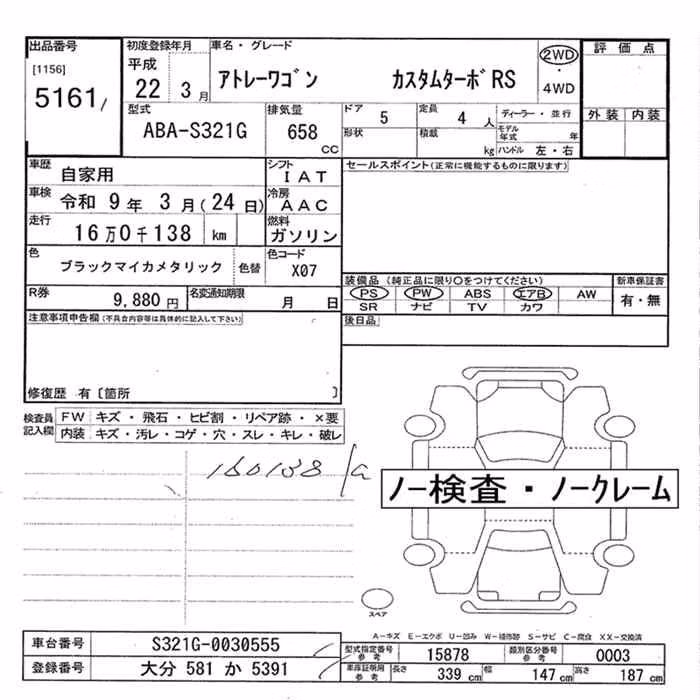 出品番号
[1156]
5161
初度登録年月
平成
22 3月
車名・グレード
アトレーワゴン カスタムターボRS
2WD
・
4WD
評価点
外装 内装
型式
ABA-S321G
排気量
658
CC
ドア
5
定員
4人
ディーラー・並行
形状
積載
kg
モデル年式
年
ハンドル 左・右
車歴
自家用
シフト
IAT
セールスポイント(正常に機能するものに限ります)
車検
令和 9年 3月(24日)
冷房
AAC
走行
16万0千138 km
燃料
ガソリン
色
ブラックマイカメタリック
色替
色コード
X07
装備品 (純正品に限り○をつけてください)
新車保証書
PS PW ABS エアB AW
有・無
SR ナビ TV カワ
R券
9,880円
名変通知期限
月 日
後日品
注意事項申告欄(不具合内容等は具体的に記入して下さい)
修復歴 有〔箇所 〕
検査員記入欄
FW キズ・飛石・ヒビ割・リペア跡・×要
内装 キズ・汚レ・コゲ・穴・スレ・キレ・破レ
160138
ノー検査・ノークレーム
スペア
A-キズ E-エクボ U-凹み W-補修跡 S-サビ C-腐食 XX-交換済
車台番号
S321G-0030555
登録番号
大分 581 か 5391
型式指定番号
参考
15878
類別区分番号
参考
0003
車庫証明用
参考
長さ
339cm
幅
147cm
高さ
187cm